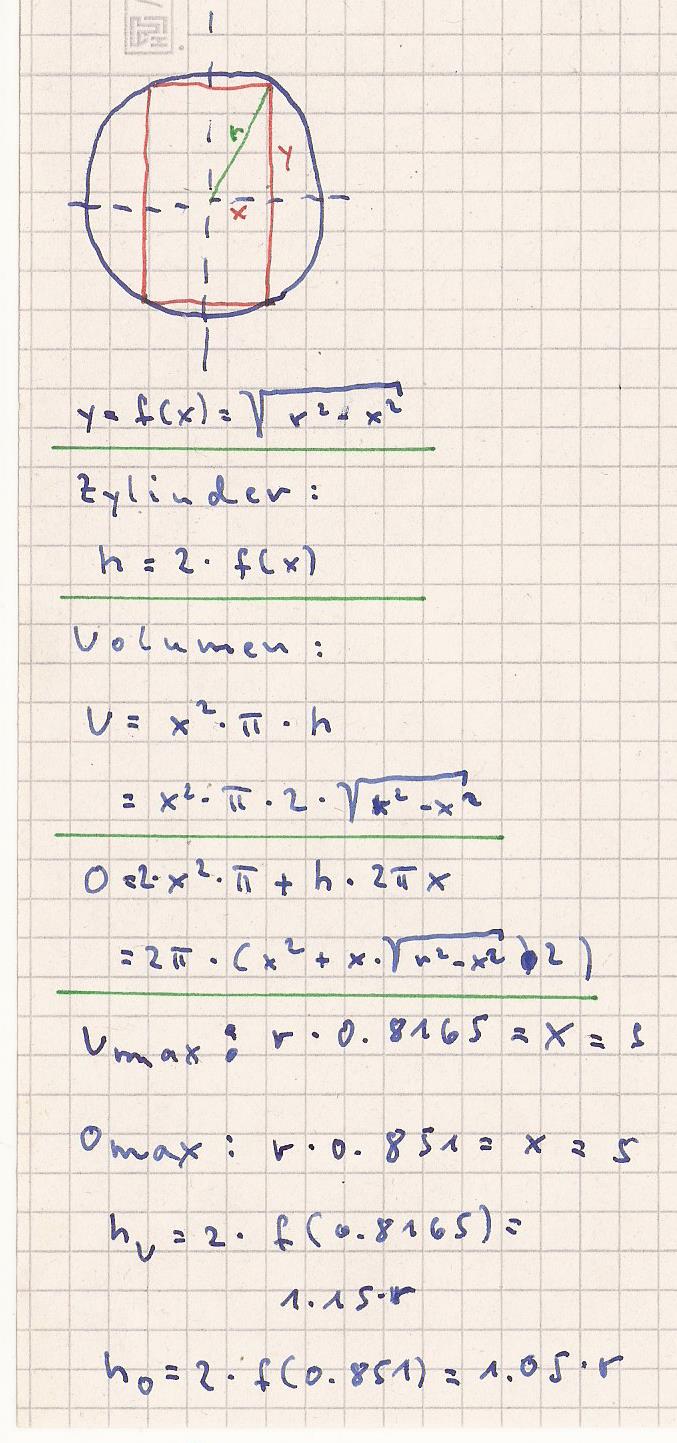 r
y
x
y = f(x) = √(r² - x²)
Zylinder:
h = 2 · f(x)
Volumen:
V = x² · π · h
= x² · π · 2 · √(r² - x²)
O = 2 · x² · π + h · 2πx
= 2π · (x² + x · √(r² - x²) · 2)
Vmax: r · 0.8165 = x = s
Omax: r · 0.851 = x = s
hv = 2 · f(0.8165) =
1.15 · r
ho = 2 · f(0.851) = 1.05 · r